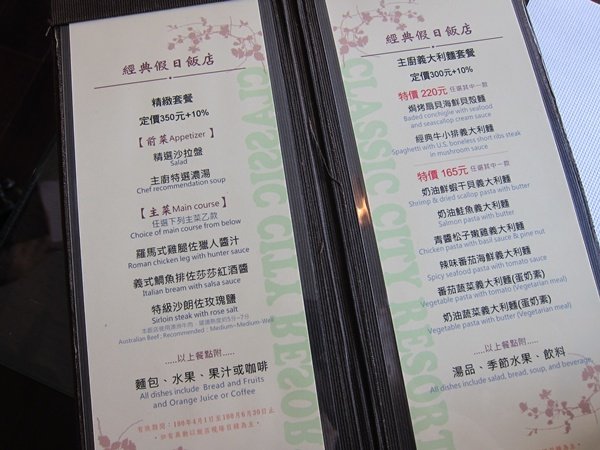 經典假日飯店
精緻套餐
定價350元+10%
【前菜Appetizer】
精選沙拉盤
Salad
主廚特選濃湯
Chef recommendation soup
【主菜Main course】
任選下列主菜乙款
Choice of main course from below
羅馬式雞腿佐獵人醬汁
Roman chicken leg with hunter sauce
義式鯛魚排佐莎莎紅酒醬
Italian bream with salsa sauce
特級沙朗佐玫瑰鹽
Sirloin steak with rose salt
Australian Beef : Recommended : Medium~Medium-Well
.....以上餐點附.....
麵包、水果、果汁或咖啡
All dishes include Bread and Fruits
and Orange Juice or Coffee
有效期間：100年4月1日至100月6月30日止
CLASSIC CITY RESOR
經典假日飯店
主廚義大利麵套餐
定價300元+10%
特價 220元 任選其中一款
焗烤扇貝海鮮貝殼麵
Baded conchiglie with seafood
and seascallop cream sauce
經典牛小排義大利麵
Spaghetti with U.S. boneless short ribs steak
in mushroom sauce
特價 165元 任選其中一款
奶油鮮蝦干貝義大利麵
Shrimp & dried scallop pasta with butter
奶油鮭魚義大利麵
Salmon pasta with butter
青醬松子嫩雞義大利麵
Chicken pasta with basil sauce & pine nut
辣味番茄海鮮義大利麵
Spicy seafood pasta with tomato sauce
番茄蔬菜義大利麵(蛋奶素)
Vegetable pasta with tomato (Vegetarian meal)
奶油蔬菜義大利麵(蛋奶素)
Vegetable pasta with butter (Vegetarian meal)
.....以上餐點附.....
湯品、季節水果、飲料
All dishes include salad, bread, soup, and beverage
CLASSIC CITY RESORT